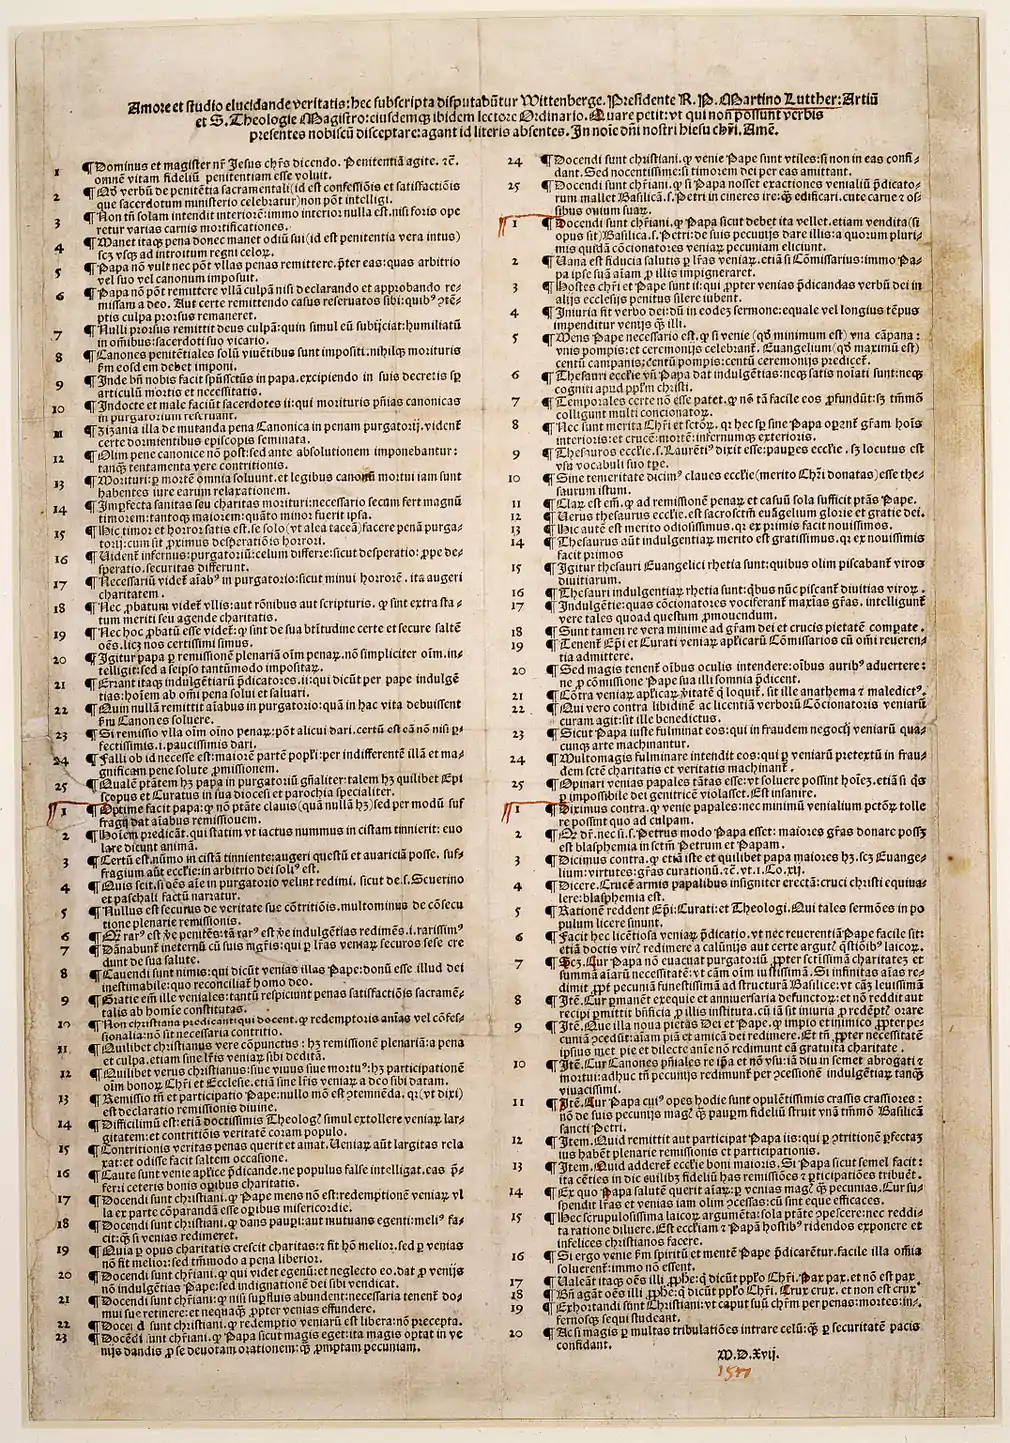 Amore et studio elucidande veritatis: hec subscripta disputabūtur Wittenberge. Presidente R. P. Martino Lutther: Artiū
et S. Theologie Magistro: eiusdemqȝ ibidem lectore Ordinario. Quare petit: vt qui non possunt verbis
presentes nobiscū disceptare: agant id literis absentes. In noīe dñi nostri hiesu chr̄i. Amē.
1 ¶ Dominus et magister nr̄ Jesus chr̄s dicendo. Penitentiā agite. ⁊c̄.
omnē vitam fideliū penitentiam esse voluit.
2 ¶ Qđ verbū de penitētia sacramentali (id est confessiōis et satisfactiōis
que sacerdotum ministerio celebratur) non pōt intelligi.
3 ¶ Non tñ solam intendit interiorē: immo interior nulla est. nisi foris ope
retur varias carnis mortificationes.
4 ¶ Manet itaqȝ pena donec manet odiū sui (id est penitentia vera intus)
scȝ vsqȝ ad introitum regni celoꝝ.
5 ¶ Papa nō vult nec pōt vllas penas remittere. p̄ter eas: quas arbitrio
vel suo vel canonum imposuit.
6 ¶ Papa nō pōt remittere vllā culpā nisi declarando et approbando re-
missam a deo. Aut certe remittendo casus reseruatos sibi: quibꝰ ↄtē-
ptis culpa prorsus remaneret.
7 ¶ Nulli prorsus remittit deus culpā: quin simul eū subijciat: humiliatū
in om̄ibus: sacerdoti suo vicario.
8 ¶ Canones penitētiales solū viuētibus sunt impositi. nihilqȝ morituris
ẜm eosdem debet imponi.
9 ¶ Inde bn̄ nobis facit spūssctūs in papa. excipiendo in suis decretis sꝑ
articulū mortis et necessitatis.
10 ¶ Indocte et male faciūt sacerdotes ii: qui morituris pn̄ias canonicas
in purgatorium reseruant.
11 ¶ Zizania illa de mutanda pena Canonica in penam purgatorij. vident̄
certe dormientibus episcopis seminata.
12 ¶ Olim pene canonice nō post: sed ante absolutionem imponebantur:
tanqȝ tentamenta vere contritionis.
13 ¶ Morituri: ꝑ mortē omnia soluunt. et legibus canonū mortui iam sunt
habentes iure earum relaxationem.
14 ¶ Imꝑfecta sanitas seu charitas morituri: necessario secum fert magnū
timorem: tantoqȝ maiorem: quāto minor fuerit ipsa.
15 ¶ Hic timor et horror satis est. se solo (vt alia taceā) facere penā purga-
torij: cum sit ꝓximus desperatiōis horrori.
16 ¶ Vident̄ infernus: purgatoriū: celum differre: sicut desperatio: ꝓpe de-
speratio. securitas differunt.
17 ¶ Necessariū videt̄ aīabꝰ in purgatorio: sicut minui horrorē. ita augeri
charitatem.
18 ¶ Nec ꝓbatum videt̄ vllis: aut rōnibus aut scripturis. ꝙ sint extra sta-
tum meriti seu agende charitatis.
19 ¶ Nec hoc ꝓbatū esse videt̄: ꝙ sint de sua btītudine certe et secure saltē
oēs. licȝ nos certissimi simus.
20 ¶ Igitur papa ꝑ remissionē plenariā oīm penaꝝ. nō simpliciter oīm. in-
telligit: sed a seipso tantūmodo impositaꝝ.
21 ¶ Errant itaqȝ indulgētiarū p̄dicatores. ii: qui dicūt per pape indulgē
tias: hoīem ab om̄i pena solui et saluari.
22 ¶ Quin nullam remittit aīabus in purgatorio: quā in hac vita debuissent
ẜm Canones soluere.
23 ¶ Si remissio vlla oīm oīno penaꝝ: pōt alicui dari. certū est eā nō nisi ꝑ-
fectissimis. i. paucissimis dari.
24 ¶ Falli ob id necesse est: maiorē partē popl'i: per indifferentē illā et ma-
gnificam pene solute ꝓmissionem.
25 ¶ Qualē ptātem hȝ papa in purgatoriū gn̄aliter: talem hȝ quilibet Epi
scopus et Curatus in sua diocesi et parochia specialiter.
1 ¶ Optime facit papa: ꝙ nō ptāte clauis (quā nullā hȝ) sed per modū suf
fragij dat aīabus remissionem.
2 ¶ Hoīem predicāt. qui statim vt iactus nummus in cistam tinnierit: euo
lare dicunt animā.
3 ¶ Certū est. nūmo in cistā tinniente: augeri questū et auariciā posse. suf-
fragium aūt eccl'ie: in arbitrio dei soliꝰ est.
4 ¶ Quis scit. si oēs aīe in purgatorio velint redimi. sicut de. s. Seuerino
et paschali factū narratur.
5 ¶ Nullus est securus de veritate sue cōtritiōis. multominus de cōsecu
tione plenarie remissionis.
6 ¶ Qȝ rarꝰ est ṽe penitēs: tā rarꝰ est ṽe indulgētias redimēs. i. rarissimꝰ
7 ¶ Dānabunt̄ ineternū cū suis mgr̄is: qui ꝑ lr̄as veniaꝝ securos sese cre
dunt de sua salute.
8 ¶ Cauendi sunt nimis: qui dicūt venias illas Pape: donū esse illud dei
inestimabile: quo reconciliat̄ homo deo.
9 ¶ Gratie em̄ ille veniales: tantū respiciunt penas satisfactiōis sacramē-
talis ab homīe constitutas.
10 ¶ Non christiana predicant: qui docent. ꝙ redemptoris anīas vel cōfes-
sionalia: nō sit necessaria contritio.
11 ¶ Quilibet christianus vere cōpunctus: hȝ remissionē plenariā: a pena
et culpa. etiam sine lr̄is veniaꝝ sibi debitā.
12 ¶ Quilibet verus christianus: siue viuus siue mortuꝰ: hȝ participationē
oīm bonoꝝ Chr̄i et Ecclesie. etiā sine lr̄is veniaꝝ a deo sibi datam.
13 ¶ Remissio tñ et participatio Pape: nullo mō est ↄtemnēda. qꝛ (vt dixi)
est declaratio remissionis diuine.
14 ¶ Difficilimū est: etiā doctissimis Theologꝭ simul extollere veniaꝝ lar-
gitatem: et contritiōis veritatē coram populo.
15 ¶ Contritionis veritas penas querit et amat. Veniaꝝ aūt largitas rela
xat: et odisse facit saltem occasione.
16 ¶ Caute sunt venie apl'ice p̄dicande. ne populus false intelligat. eas p̄-
ferri ceteris bonis oꝑibus charitatis.
17 ¶ Docendi sunt christiani. ꝙ Pape mens nō est: redemptionē veniaꝝ vl
la ex parte cōparandā esse oꝑibus misericordie.
18 ¶ Docendi sunt christiani. ꝙ dans pauꝑi: aut mutuans egenti: meliꝰ fa-
cit: qȝ si venias redimeret.
19 ¶ Quia ꝑ opus charitatis crescit charitas: ⁊ fit hō melior. sed ꝑ venias
nō fit melior: sed tm̄modo a pena liberior.
20 ¶ Docendi sunt chr̄iani. ꝙ qui videt egenū: et neglecto eo. dat ꝓ venijs
nō indulgētias Pape: sed indignationē dei sibi vendicat.
21 ¶ Docendi sunt chr̄iani: ꝙ nisi suꝑfluis abundent: necessaria tenent̄ do-
mui sue retinere: et nequaqȝ ꝓpter venias effundere.
22 ¶ Docēdi sunt christiani. ꝙ redemptio veniarū est libera: nō precepta.
23 ¶ Docēdi sunt chr̄iani. ꝙ Papa sicut magis eget: ita magis optat in ve
nijs dandis ꝓ se deuotam orationem: qȝ ꝓmptam pecuniam.
24 ¶ Docendi sunt christiani. ꝙ venie Pape sunt vtiles: si non in eas confi-
dant. Sed nocentissime: si timorem dei per eas amittant.
25 ¶ Docendi sunt chr̄iani. ꝙ si Papa nosset exactiones venialiū p̄dicato-
rum mallet Basilicā. s. Petri in cineres ire: qȝ edificari. cute carne ⁊ os-
sibus ouium suaꝝ.
1 ¶ Docendi sunt chr̄iani. ꝙ Papa sicut debet ita vellet. etiam vendita (si
opus sit) Basilica. s. Petri: de suis pecunijs dare illis: a quorum pluri-
mis quidā cōcionatores veniaꝝ pecuniam eliciunt.
2 ¶ Vana est fiducia salutis ꝑ lr̄as veniaꝝ. etiā si Cōmissarius: immo Pa-
pa ipse suā aīam ꝓ illis impigneraret.
3 ¶ Hostes chr̄i et Pape sunt ii: qui ꝓpter venias p̄dicandas verbū dei in
alijs ecclesijs penitus silere iubent.
4 ¶ Iniuria fit verbo dei: dū in eodeȝ sermone: equale vel longius tēpus
impenditur venijs qȝ illi.
5 ¶ Mens Pape necessario est. ꝙ si venie (qđ minimum est) vna cāpana:
vnis pompis: et ceremonijs celebrant̄. Euangelium (qđ maximū est)
centū campanis: centū pompis: centū ceremonijs predicet̄.
6 ¶ Thesauri eccl'ie vn̄ Papa dat indulgētias: neqȝ satis noīati sunt: neqȝ
cogniti apud ppl'm christi.
7 ¶ Temporales certe nō esse patet. ꝙ nō tā facile eos ꝓfundūt: sȝ tm̄mō
colligunt multi concionatoꝝ.
8 ¶ Nec sunt merita Chr̄i et sctōꝝ. qꝛ hec sꝑ sine Papa oꝑant̄ gr̄am hoīs
interioris: et crucē: mortē: infernumqȝ exterioris.
9 ¶ Thesauros eccl'ie. s. Laurentiꝰ dixit esse: pauꝑes eccl'ie. sȝ locutus est
vsu vocabuli suo tꝑe.
10 ¶ Sine temeritate dicimꝰ claues eccl'ie (merito Chr̄i donatas) esse the-
saurum istum.
11 ¶ Claꝝ est em̄. ꝙ ad remissionē penaꝝ et casuū sola sufficit ptās Pape.
12 ¶ Verus thesaurus eccl'ie. est sacrosctm̄ euāgelium glorie et gratie dei.
13 ¶ Hic autē est merito odiosissimus. qꝛ ex primis facit nouissimos.
14 ¶ Thesaurus aūt indulgentiaꝝ merito est gratissimus. qꝛ ex nouissimis
facit primos
15 ¶ Igitur thesauri Euangelici rhetia sunt: quibus olim piscabant̄ viros
diuitiarum.
16 ¶ Thesauri indulgentiaꝝ rhetia sunt: q̄bus nūc piscant̄ diuitias viroꝝ.
17 ¶ Indulgētie: quas cōcionatores vociferant̄ maxīas gr̄as. intelligunt̄
vere tales quoad questum ꝓmouendum.
18 ¶ Sunt tamen re vera minime ad gr̄am dei et crucis pietatē compate.
19 ¶ Tenent̄ Ep̄i et Curati veniaꝝ apl'icarū Cōmissarios cū om̄i reueren-
tia admittere.
20 ¶ Sed magis tenent̄ oībus oculis intendere: oībus auribꝰ aduertere:
ne ꝓ cōmissione Pape sua illi somnia p̄dicent.
21 ¶ Cōtra veniaꝝ apl'icaꝝ ṽitatē q̄ loquit̄. sit ille anathema ⁊ maledictꝰ.
22 ¶ Qui vero contra libidinē ac licentiā verborū Cōcionatoris veniarū
curam agit: sit ille benedictus.
23 ¶ Sicut Papa iuste fulminat eos: qui in fraudem negocij veniarū qua-
cunqȝ arte machinantur.
24 ¶ Multomagis fulminare intendit eos: qui ꝑ veniarū pretextū in frau-
dem sctē charitatis et veritatis machinant̄.
25 ¶ Opinari venias papales tātas esse: vt soluere possint hoīeȝ. etiā si q̄s
ꝑ impossibile dei genitricē violasset. Est insanire.
1 ¶ Diximus contra. ꝙ venie papales: nec minimū venialium pctōꝝ tolle
re possint quo ad culpam.
2 ¶ Qđ dr̄. nec si. s. Petrus modo Papa esset: maiores gr̄as donare possȝ
est blasphemia in sctm̄ Petrum et Papam.
3 ¶ Dicimus contra. ꝙ etiā iste et quilibet papa maiores hȝ. scȝ Euange-
lium: virtutes: gr̄as curationū. ⁊c̄. vt. 1. Co. xij.
4 ¶ Dicere. Crucē armis papalibus insigniter erectā: cruci christi equiua-
lere: blasphemia est.
5 ¶ Rationē reddent Ep̄i: Curati: et Theologi. Qui tales sermōes in po
pulum licere sinunt.
6 ¶ Facit hec licētiosa veniaꝝ p̄dicatio. vt nec reuerentiā Pape facile sit:
etiā doctis virꝭ redimere a calūnijs aut certe argutꝭ q̄stiōibꝰ laicoꝝ.
7 ¶ Scȝ. Cur Papa nō euacuat purgatoriū ꝓpter sctīssimā charitateȝ et
summā aīarū necessitatē: vt cām oīm iustissimā. Si infinitas aīas re-
dimit ꝓpt̄ pecuniā funestissimā ad structurā Basilice: vt cāȝ leuissimā
8 ¶ Itē. Cur ꝑmanēt exequie et anniuersaria defunctoꝝ: et nō reddit aut
recipi ꝑmittit bn̄ficia ꝓ illis instituta. cū iā sit iniuria ꝓ redēptꝭ orare
9 ¶ Itē. Que illa noua pietas Dei et Pape. ꝙ impio et inimico ꝓpter pe-
cuniā ↄcedūt: aīam piā et amicā dei redimere. Et tñ ꝓpter necessitatē
ipsius met pie et dilecte aīe nō redimunt eā gratuita charitate.
10 ¶ Itē. Cur Canones pn̄iales re ip̄a et nō vsu: iā diu in semet abrogati ⁊
mortui: adhuc tñ pecunijs redimunt̄ per ↄcessionē indulgētiaꝝ tanqȝ
viuacissimi.
11 ¶ Itē. Cur Papa cuiꝰ opes hodie sunt opulētissimis crassis crassiores:
nō de suis pecunijs magꝭ qȝ pauꝑm fideliū struit vnā tm̄mō Basilicā
sancti Petri.
12 ¶ Item. Quid remittit aut participat Papa iis: qui ꝑ ↄtritionē ꝑfectaȝ
ius habēt plenarie remissionis et participationis.
13 ¶ Item. Quid adderet̄ eccl'ie boni maioris. Si Papa sicut semel facit:
ita cēties in die cuilibȝ fideliū has remissiōes ⁊ ꝑticipatiōes tribuēt̄.
14 ¶ Ex quo Papa salutē querit aīaꝝ: ꝑ venias magꝭ qȝ pecunias. Cur su-
spendit lr̄as et venias iam olim ↄcessas: cū sint eque efficaces.
15 ¶ Hec scrupulosissima laicoꝝ argumēta: sola ptāte ↄpescere: nec reddi-
ta ratione diluere. Est eccl'iam ⁊ Papā hostibꝰ ridendos exponere et
infelices christianos facere.
16 ¶ Si ergo venie ẜm spiritū et mentē Pape p̄dicarēt̄ur. facile illa om̄ia
soluerent̄: immo nō essent.
17 ¶ Valeāt itaqȝ oēs illi ꝓph̄e: q̄ dicūt ppl'o Chr̄i. Pax pax. et nō est pax
18 ¶ Bn̄ agāt oēs illi ꝓph̄e: q̄ dicūt ppl'o Chr̄i. Crux crux. et non est crux
19 ¶ Exhortandi sunt Christiani: vt caput suū chr̄m per penas: mortes: in-
fernosqȝ sequi studeant.
20 ¶ Ac si magis ꝑ multas tribulatiōes intrare celū: qȝ ꝑ securitatē pacis
confidant.
M. D. Xvij.
1517